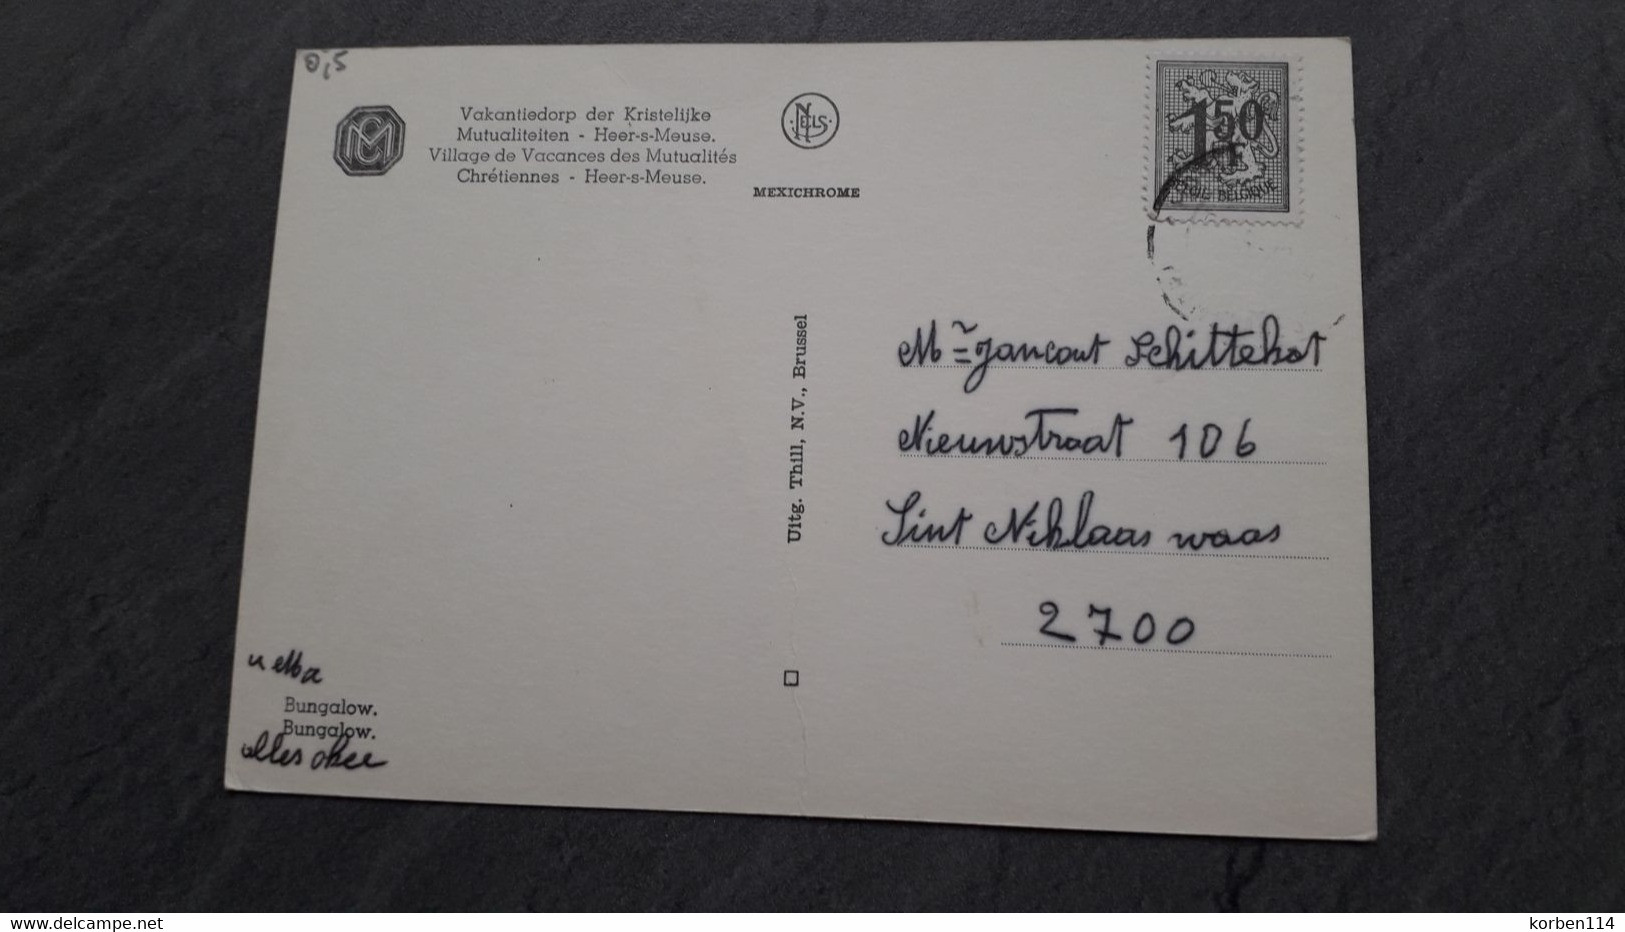 0,5
Vakantiedorp der Kristelijke
Mutualiteiten - Heer-s-Meuse.
Village de Vacances des Mutualités
Chrétiennes - Heer-s-Meuse.
CM
NELS
MEXICHROME
1 50
F
BELGIE-BELGIQUE
Uitg. Thill, N.V., Brussel
Schittekat
Nieuwstraat 106
Sint Niklaas waas
2700
Bungalow.
Bungalow.
alles okee
www.delcampe.net
korben114